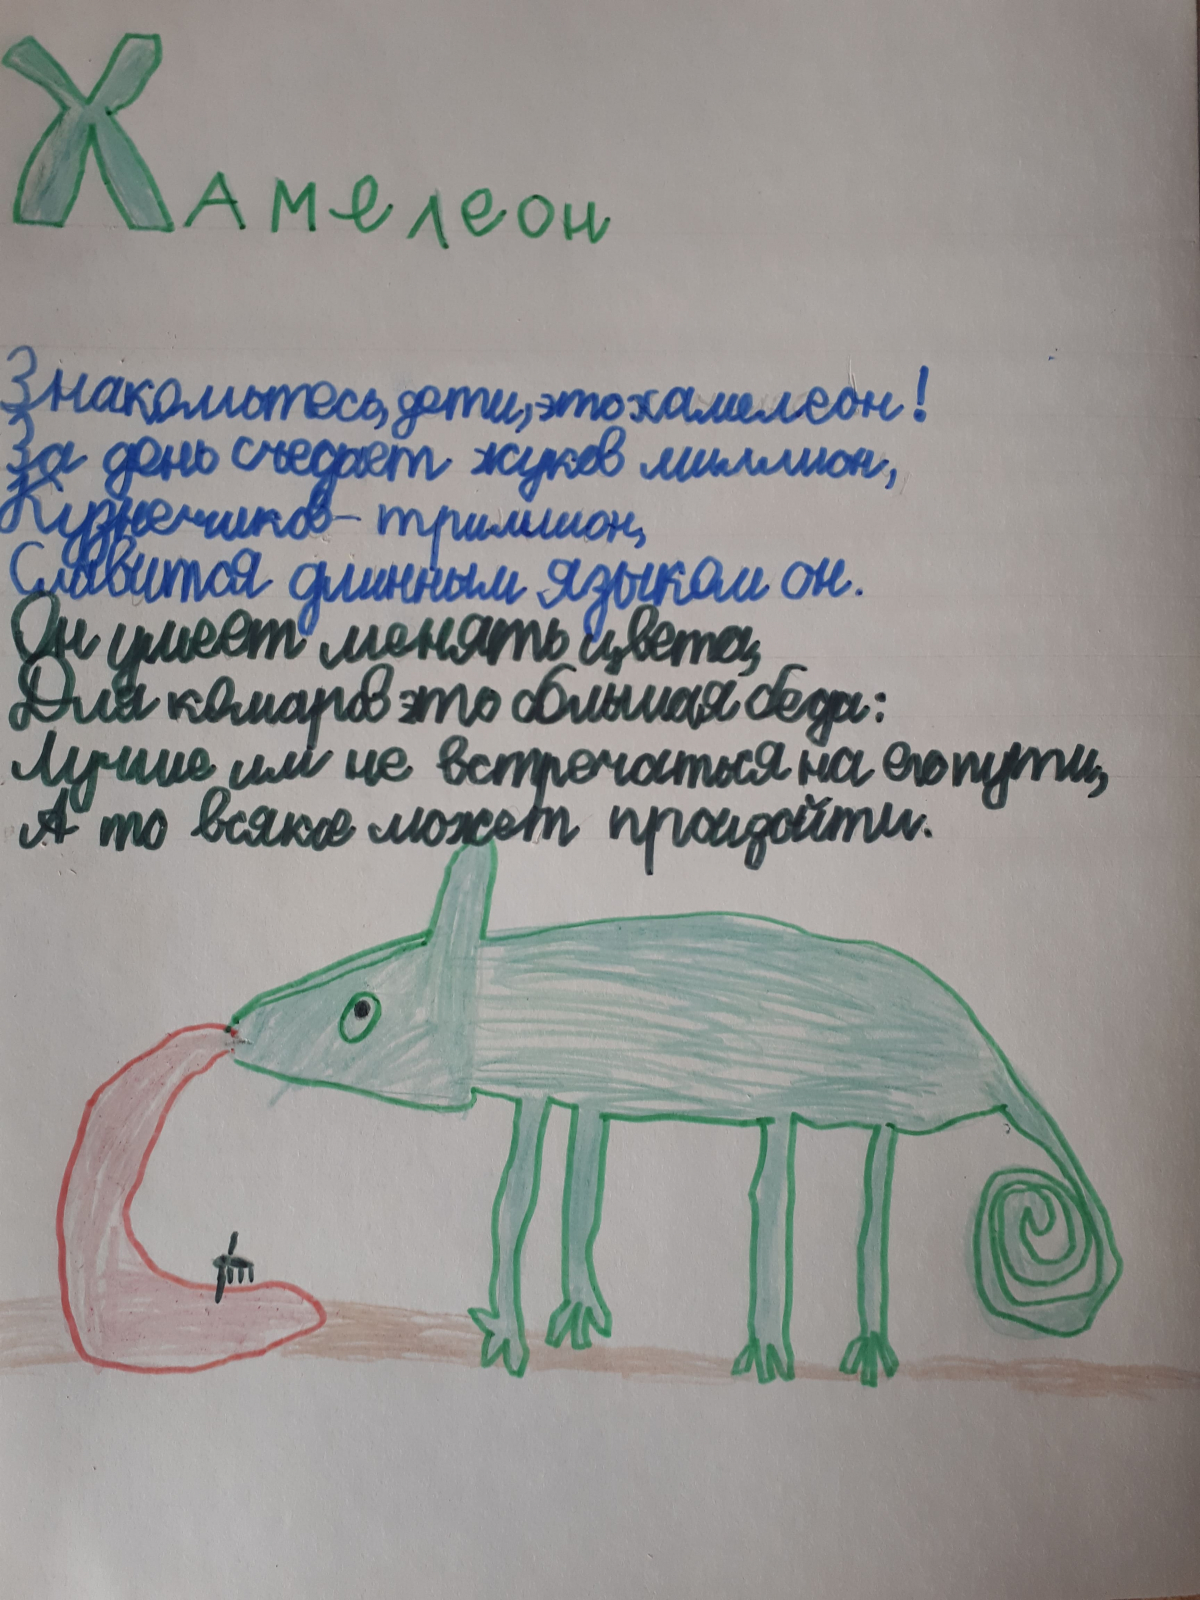 Хамелеон
Знакомьтесь, дети, это хамелеон!
За день съедает жуков миллион,
Кузнечиков – триллион,
Славится длинным языком он.
Он умеет менять цвета,
Для комаров это большая беда:
Лучше им не встречаться на его пути,
А то всякое может произойти.